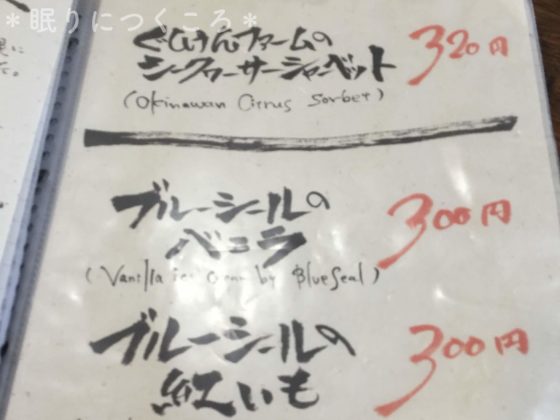 ＊眠りにつくころ＊
ぐしけんファームの
シークヮーサーシャーベット
320円
(Okinawan Citrus Sorbet)
ブルーシールの
バニラ
300円
(Vanilla ice cream by BlueSeal)
ブルーシールの
紅いも
300円